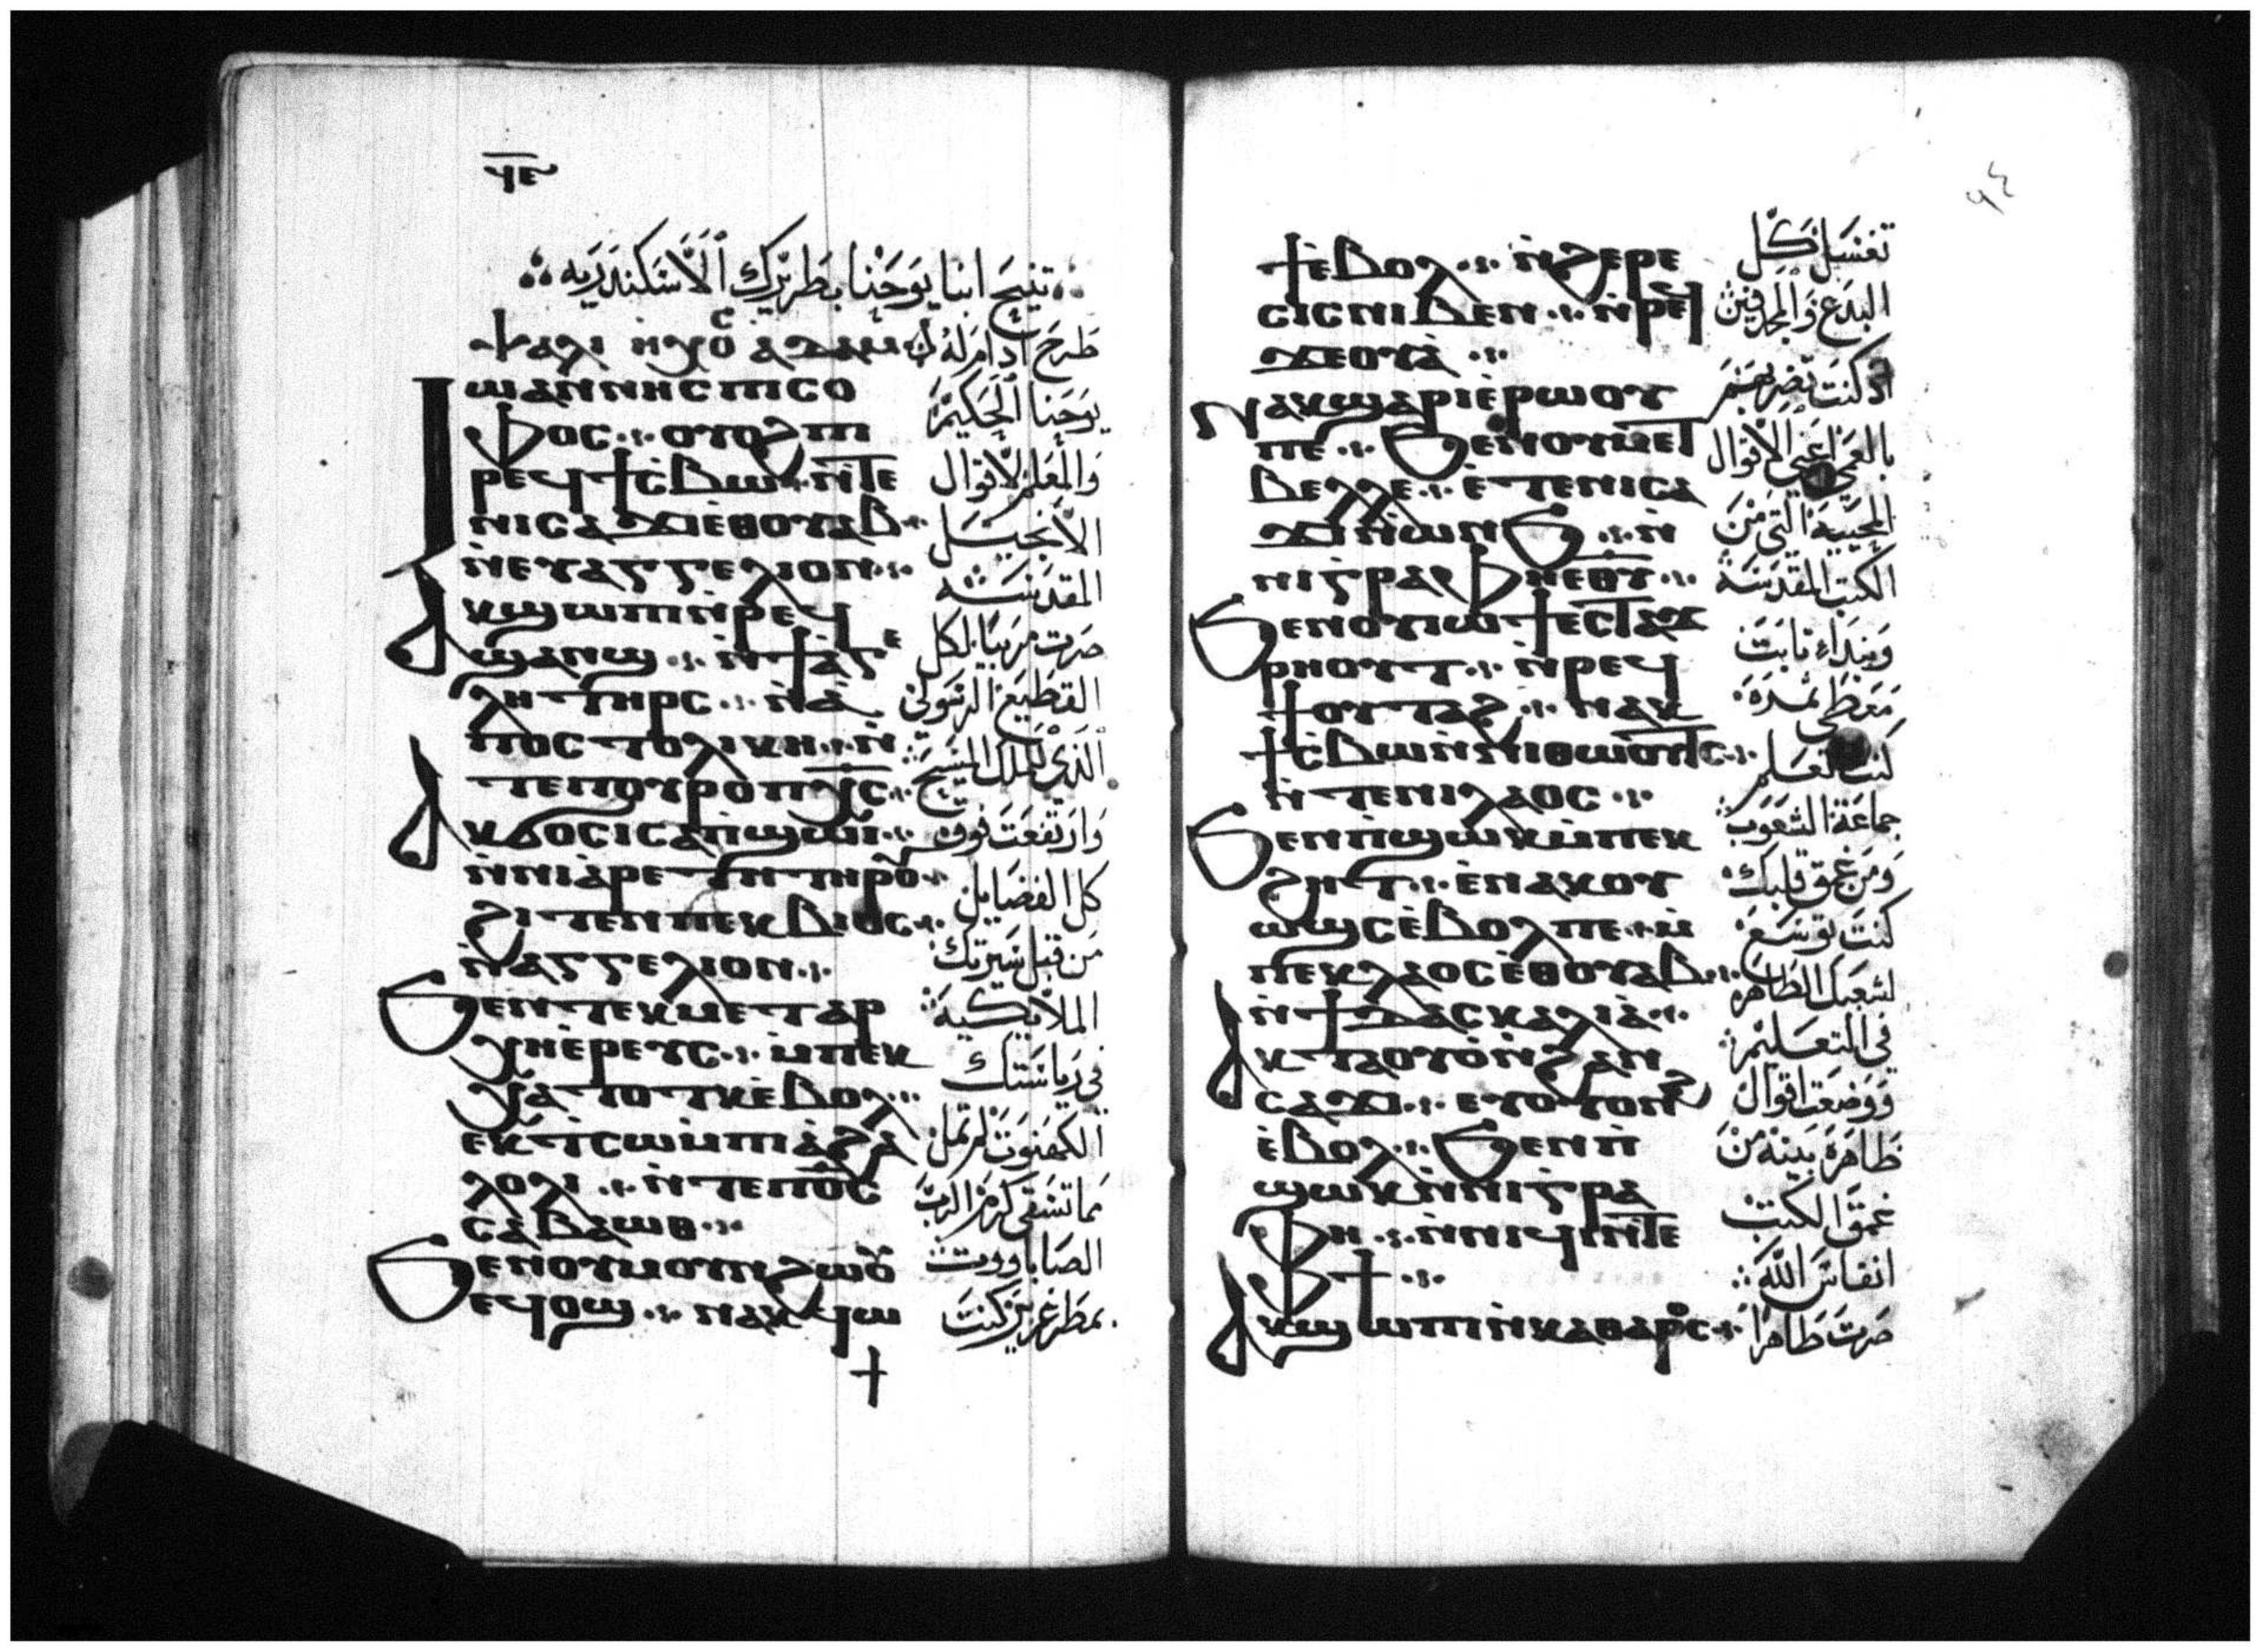 ϥⲉ
تنيح انبا يوحنا بطريرك الاسكندريه
ⲯⲁⲗⲓ ⲁⲇⲁⲙ
ⲓⲱⲁⲛⲛⲏⲥ ⲡⲓⲥⲟ
ⲫⲟⲥ ⲟⲩⲟϩ ⲡⲓ
ⲣⲉϥϯⲥ̀ⲃⲱ ⲛ̀ⲧⲉ
ⲛⲓⲥⲁϫⲓ ⲉ̀ⲑⲟⲩⲁⲃ
ⲛ̀ⲉⲩⲁⲅⲅⲉⲗⲓⲟⲛ
ⲁⲕϣⲱⲡⲓ ⲛ̀ⲣⲉϥ
ϣⲁⲛϣ ⲛ̀ϯⲁ̀ⲅⲉ
ⲗⲏ ⲧⲏⲣⲥ ⲛ̀ⲁ̀
ⲡⲟⲥⲧⲟⲗⲓⲕⲏ ⲛ̀
ⲧⲉⲡⲟⲩⲣⲟ ⲡⲭ̅ⲥ̅
ⲁⲕϭⲟⲥⲓ ⲥⲁⲡ̀ϣⲱⲓ
ⲛ̀ⲛⲓⲁ̀ⲣⲉⲧⲏ ⲧⲏⲣⲟⲩ
ϩⲓⲧⲉⲛ ⲡⲉⲕⲃⲓⲟⲥ
ⲛ̀ⲁⲅⲅⲉⲗⲓⲟⲛ
ϧⲉⲛ ⲧⲉⲕⲙⲉⲧⲁⲣ
ⲭⲏⲉ̀ⲣⲉⲩⲥ ⲙ̀ⲡⲉⲕ
ⲭⲁⲧⲟⲧⲕ ⲉ̀ⲃⲟⲗ
ⲉⲕⲧ̀ⲥⲱ ⲙ̀ⲡⲓⲁ̀ϩⲁ
ⲗⲟⲗⲓ ⲛ̀ⲧⲉⲡⲟ̅ⲥ̅
ⲥⲁⲃⲁⲱⲑ
ϧⲉⲛ ⲟⲩⲙⲟⲩⲛϩⲱⲟⲩ
ⲉϥⲟϣ ⲛⲁⲕϥⲱ
طرح ادام له
يوحنا الحكيم
والمعلم لاقوال
الانجيل
المقدسه
صرت مربيا لكل
القطيع الرسولي
الذي للملك المسيح
وارتفعت فوق
كل الفضايل
من قبل سيرتك
الملايكية
في رياستك
الكهنوت لم تمل
مما تسقي كرم الرب
الصاباووت
بمطر غزير كنت
٩٤
ϯ ⲉ̀ⲃⲟⲗ ⲛ̀ϩⲉⲣⲉ
ⲥⲓⲥ ⲛⲓⲃⲉⲛ ⲛ̀ⲣⲉϥ
ϫⲉⲟⲩⲁ̀
ⲛⲁⲕϣⲁⲣⲓ ⲉ̀ⲣⲱⲟⲩ
ⲡⲉ ϧⲉⲛ ⲟⲩⲙⲉⲧ
ⲃⲉⲗⲗⲉ ⲉ̀ⲧⲉ ⲛⲓⲥⲁ
ϫⲓ ⲛ̀ⲱⲛϧ ⲛ̀
ⲛⲓⲅⲣⲁⲫⲏ ⲉ̅ⲑ̅ⲩ̅
ϧⲉⲛ ⲟⲩϩⲓⲱⲓϣ ⲉⲥⲧⲁϫ
ⲣⲏⲟⲩⲧ ⲛ̀ⲣⲉϥ
ϯⲟⲩⲧⲁϩ ⲛⲁⲕ
ϯⲥ̀ⲃⲱ ⲛ̀ⲛⲓⲑⲱⲟⲩⲧⲥ
ⲛ̀ⲧⲉ ⲛⲓⲗⲁⲟⲥ
ϧⲉⲛ ⲡ̀ϣⲱⲕ ⲙ̀ⲡⲉⲕ
ϩⲏⲧ ⲉ̀ⲛⲁⲕⲟⲩ
ⲱϣⲥ ⲉ̀ⲃⲟⲗ ⲡⲉ ⲙ̀
ⲡⲉⲕⲗⲁⲟⲥ ⲉ̀ⲑⲟⲩⲁⲃ
ⲛ̀ϯⲇⲁⲥⲕⲁⲗⲓⲁ̀
ⲁⲕⲧⲁⲟⲩⲟ̀ ⲛ̀ϩⲁⲛ
ⲥⲁϫⲓ ⲉⲩⲟⲩⲟⲛϩ
ⲉ̀ⲃⲟⲗ ϧⲉⲛ ⲡ̀
ϣⲱⲕ ⲛ̀ⲛⲓⲅⲣⲁ
ⲫⲏ ⲛ̀ⲛⲓϥⲓ ⲛ̀ⲧⲉ
ⲫϯ
ⲁⲕϣⲱⲡⲓ ⲛ̀ⲕⲁⲑⲁⲣⲟⲥ
تغسل كل
البدع والمجدفين
اذ كنت تضربهم
بالعصا اعني الاقوال
المحييه التي من
الكتب المقدسة
وبنداء ثابت
معطي ثمرة
كنت تعلم
جماعة الشعوب
ومن عمق قلبك
كنت توسع
لشعبك الطاهر
في التعليم
ووضعت اقوال
ظاهرة بينة من
عمق الكتب
انفاس الله
صرت طاهرا